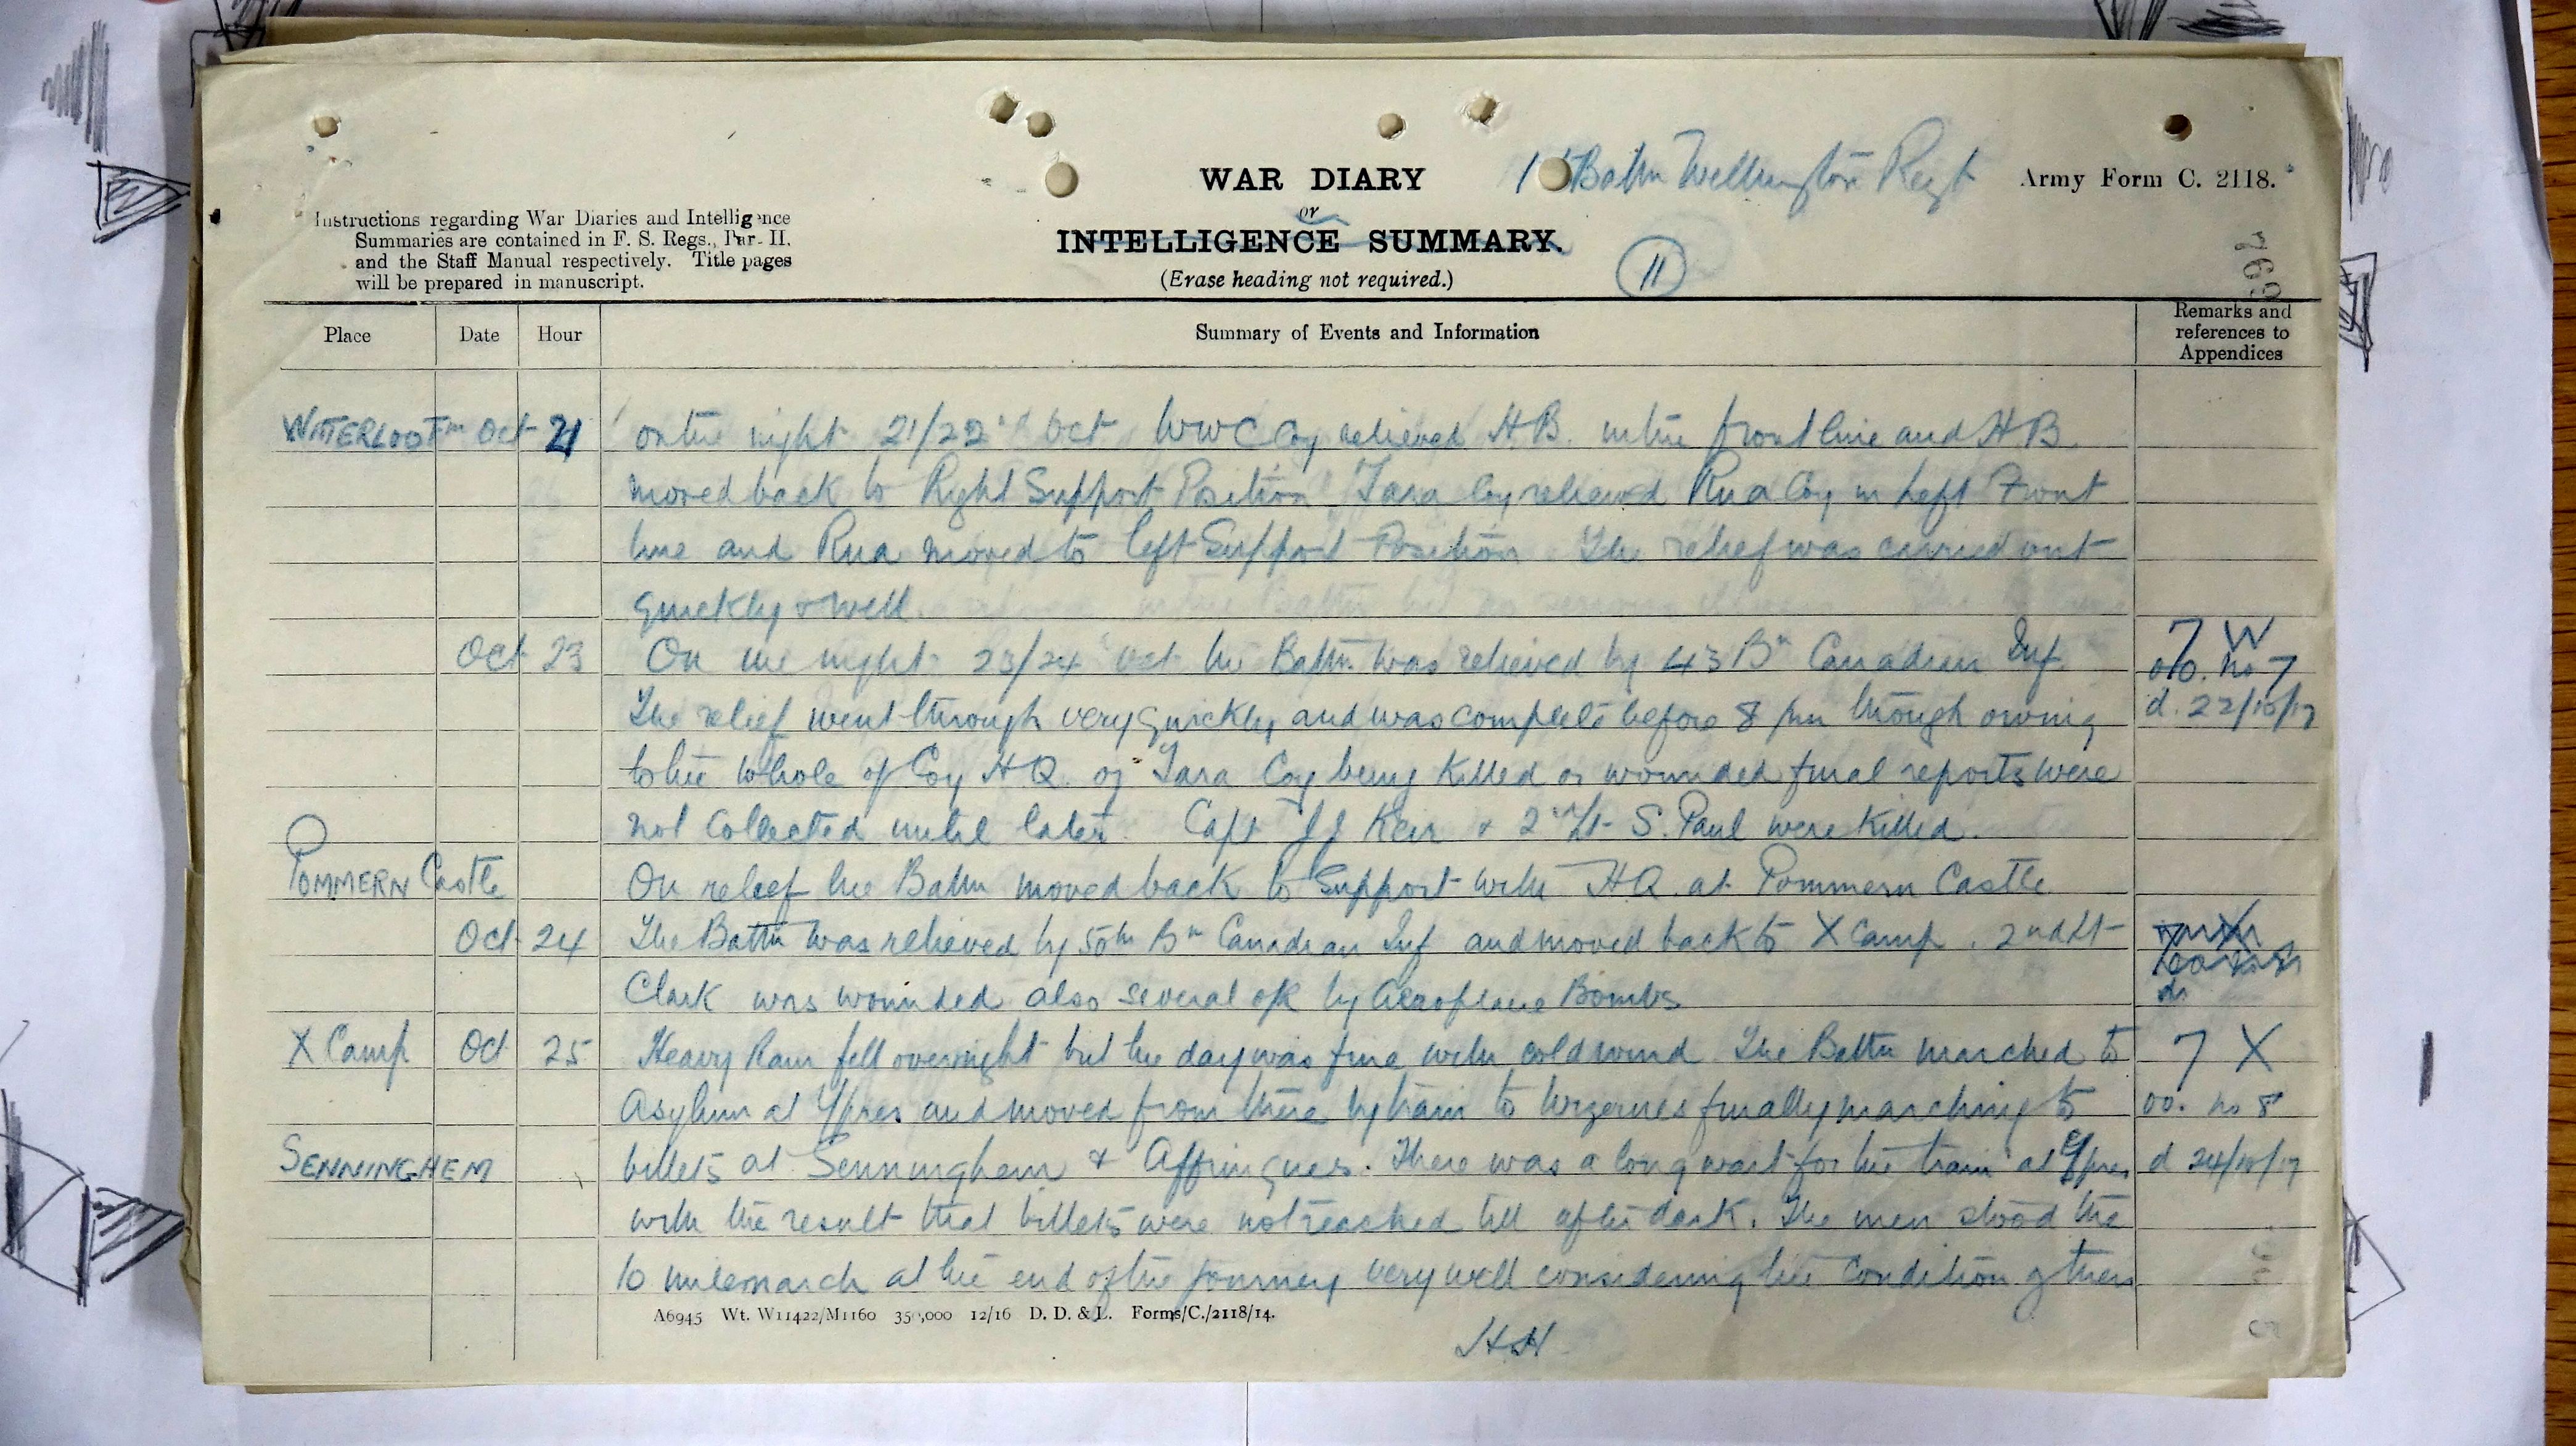 1st Battn Wellington Regt
WAR DIARY
or
INTELLIGENCE SUMMARY.
(Erase heading not required.)
Army Form C. 2118.
11
769
Instructions regarding War Diaries and Intelligence
Summaries are contained in F. S. Regs., Part II.
and the Staff Manual respectively. Title pages
will be prepared in manuscript.
Place Date Hour Summary of Events and Information Remarks and references to Appendices
WATERLOO Fm Oct 21 on the night 21/22nd Oct WWC Coy relieved HB. in the front line and HB
moved back to Right Support Position Tara Coy relieved Rua Coy in Left Front
line and Rua moved to left Support Position. The relief was carried out
quickly & well.
Oct 23 On the night 23/24 Oct the Battn was relieved by 43 Bn Canadian Inf 7 W
o/o. no 7
The relief went through very quickly and was complete before 8 pm though owing d. 22/10/17
to the whole of Coy HQ. of Tara Coy being killed or wounded final reports were
not collected until later. Capt JJ Keir & 2nd Lt S. Paul were killed.
POMMERN Castle On relief the Battn moved back to Support with HQ. at Pommern Castle
Oct 24 The Battn was relieved by 50th Bn Canadian Inf and moved back to X Camp. 2nd Lt
Clark was wounded also several OR by Aeroplane Bombs
X Camp Oct 25 Heavy Rain fell overnight but the day was fine with cold wind The Battn marched to 7 X
Asylum at Ypres and moved from there by train to Wizernes finally marching to oo. no 8
SENNINGHEM billets at Senninghem & Affringues. There was a long wait for the train at Ypres d 24/10/17
with the result that billets were not reached till after dark. The men stood the
10 mile march at the end of the journey very well considering the condition of their
A6945 Wt. W11422/M1160 350,000 12/16 D. D. & L. Forms/C./2118/14.
HH.